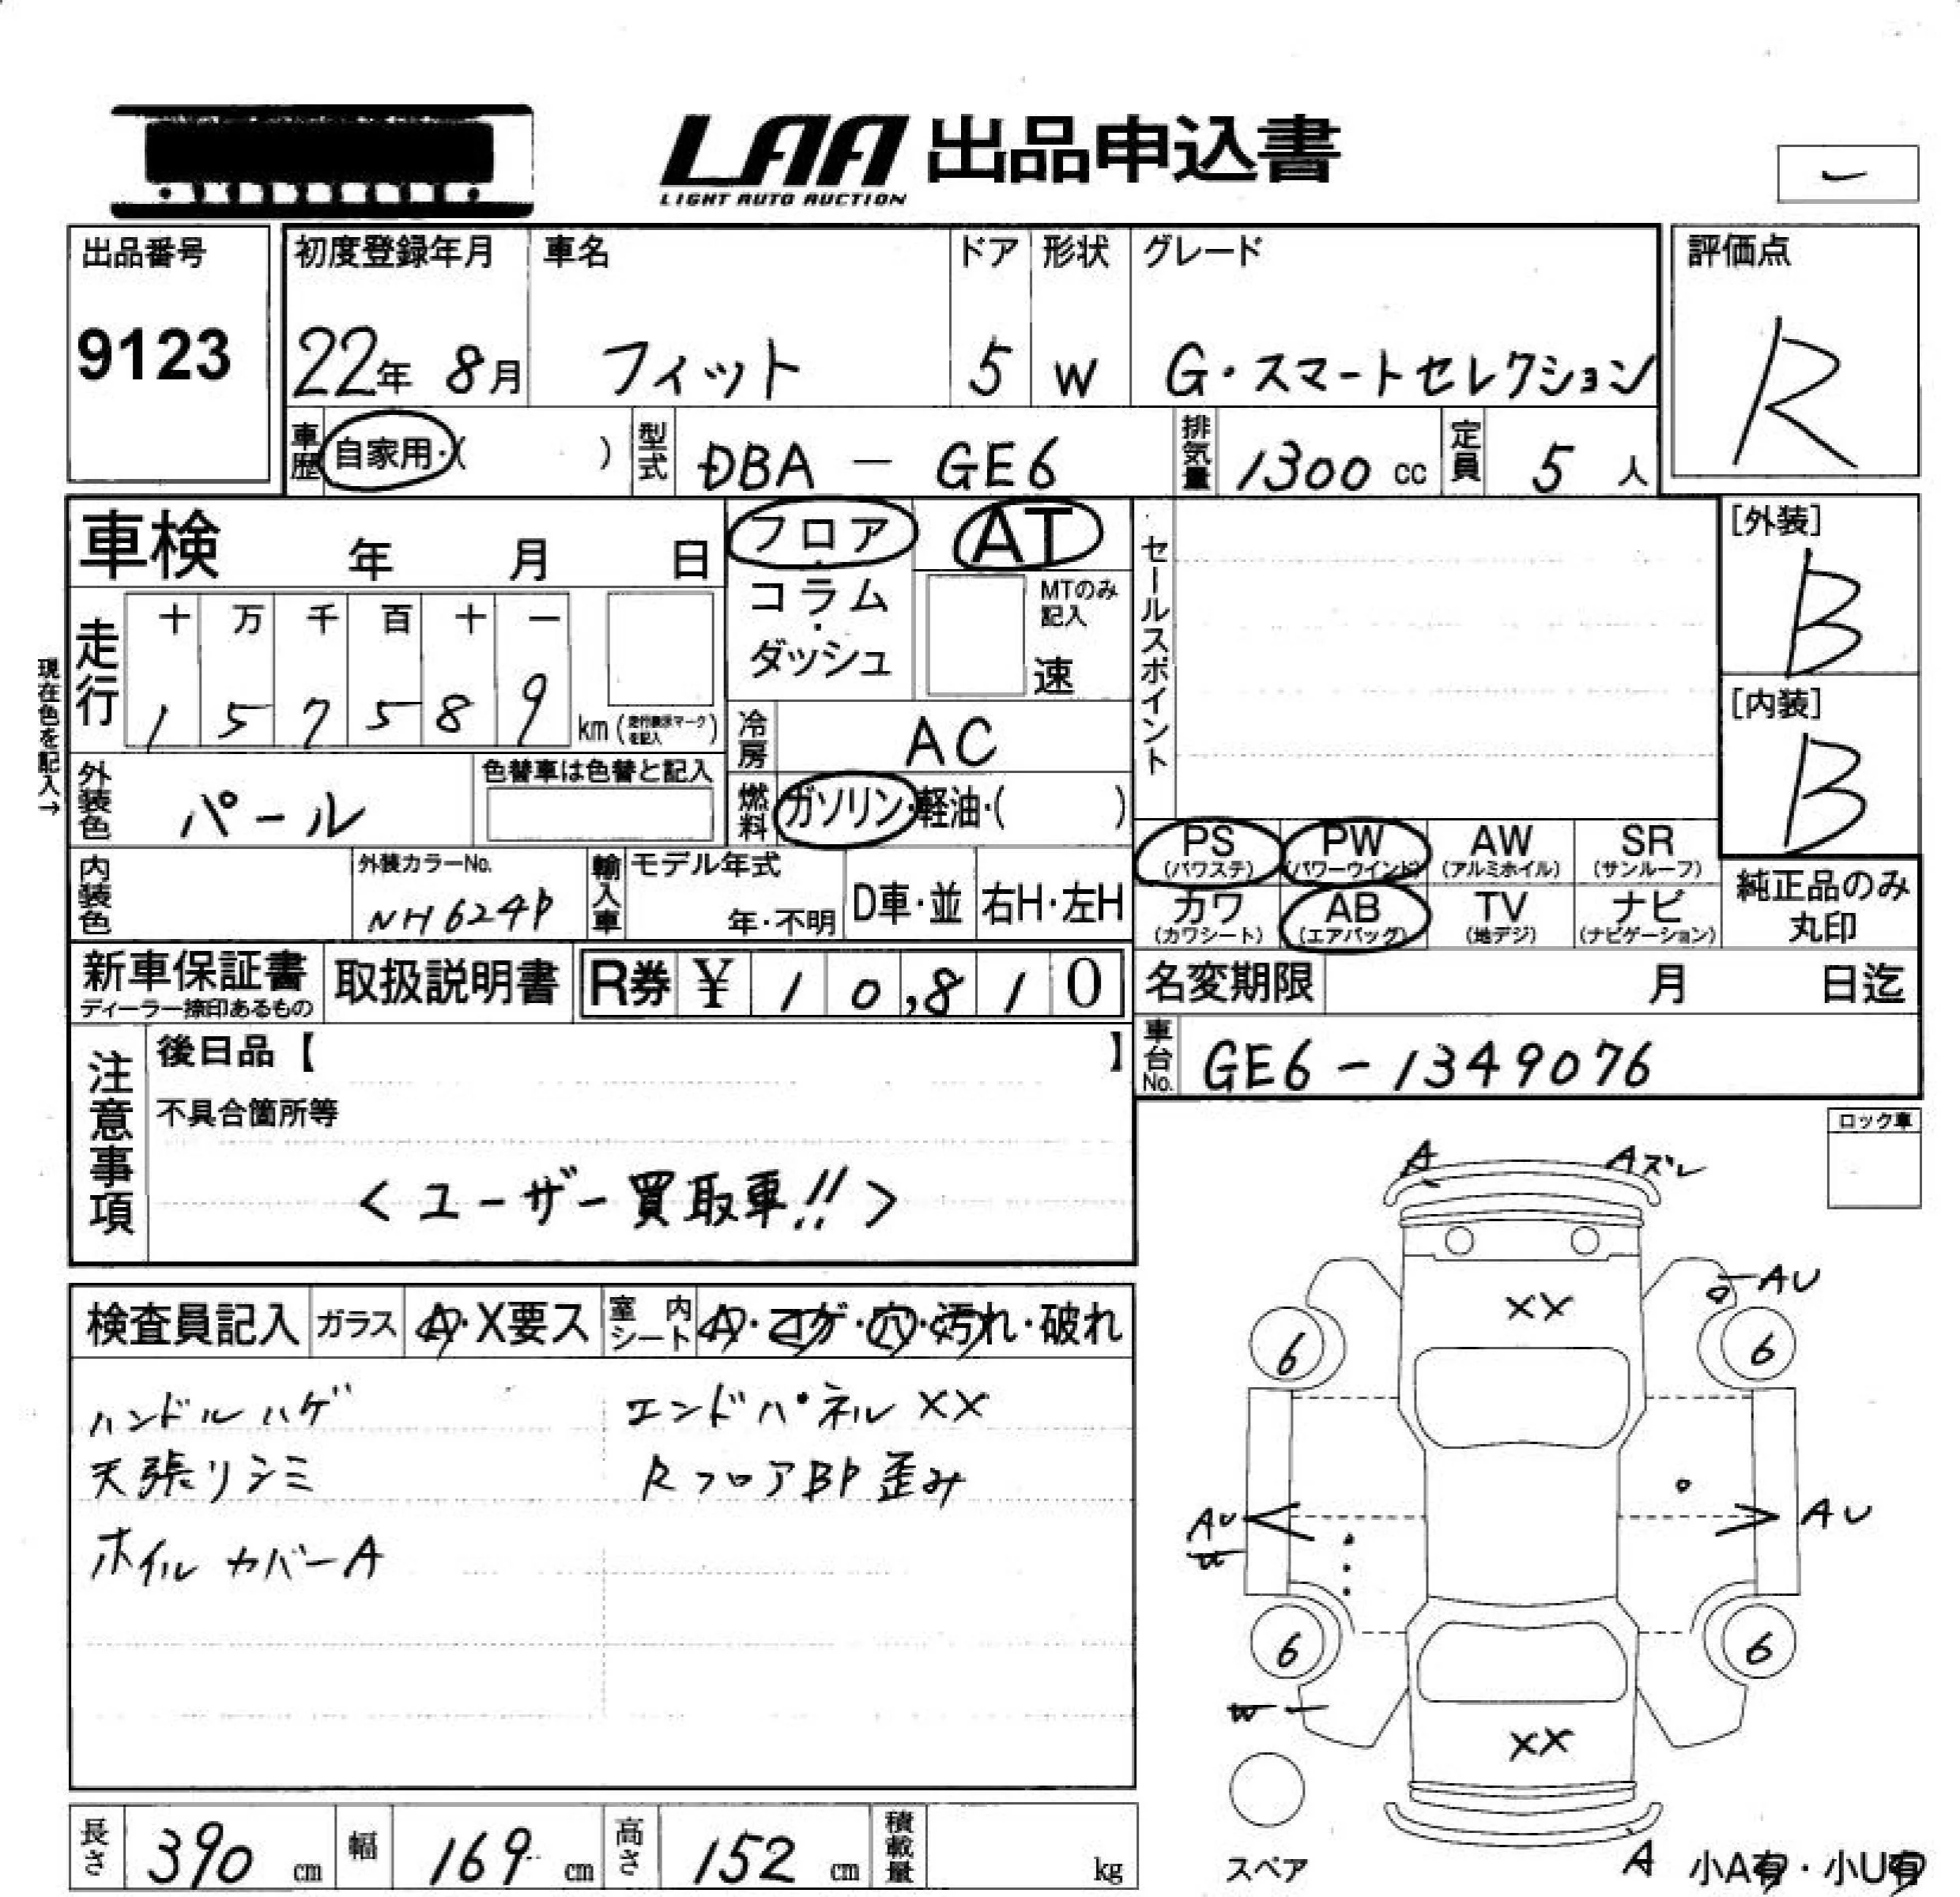 LAA 出品申込書
LIGHT AUTO AUCTION
出品番号 初度登録年月 車名 ドア 形状 グレード 評価点
9123 22年 8月 フィット 5 W G・スマートセレクション R
車歴 自家用・( ) 型式 DBA - GE6 排気量 1300 cc 定員 5 人
車検 年 月 日 フロア AT セールスポイント [外装]
B
コラム MTのみ記入
ダッシュ 速
走行 十 万 千 百 十 一
1 5 7 5 8 9 km (走行表示マークを記入)
[内装]
B
現在色を記入→
冷房 AC
外装色 パール 色替車は色替と記入 燃料 ガソリン・軽油・( )
PS PW AW SR
(パワステ) (パワーウインド) (アルミホイル) (サンルーフ)
内装色 外装カラーNo. 輸入車 モデル年式
NH624P 年・不明 D車・並 右H・左H
カワ AB TV ナビ
(カワシート) (エアバッグ) (地デジ) (ナビゲーション)
純正品のみ
丸印
新車保証書 取扱説明書 R券 ¥ 10,810 名変期限 月 日迄
ディーラー捺印あるもの
注意事項 後日品【 】
車台No. GE6-1349076
不具合箇所等
<ユーザー買取車!!>
ロック車
検査員記入 ガラス A・X要ス 室内シート A・コゲ・穴・汚れ・破れ
ハンドルハゲ エンドパネルXX
天張リシミ RフロアBP歪み
ホイルカバーA
A Aズレ
AU
XX
6 6
AU AU
U
6 6
W
XX
スペア A 小A有・小U有
長さ 390 cm 幅 169 cm 高さ 152 cm 積載量 kg